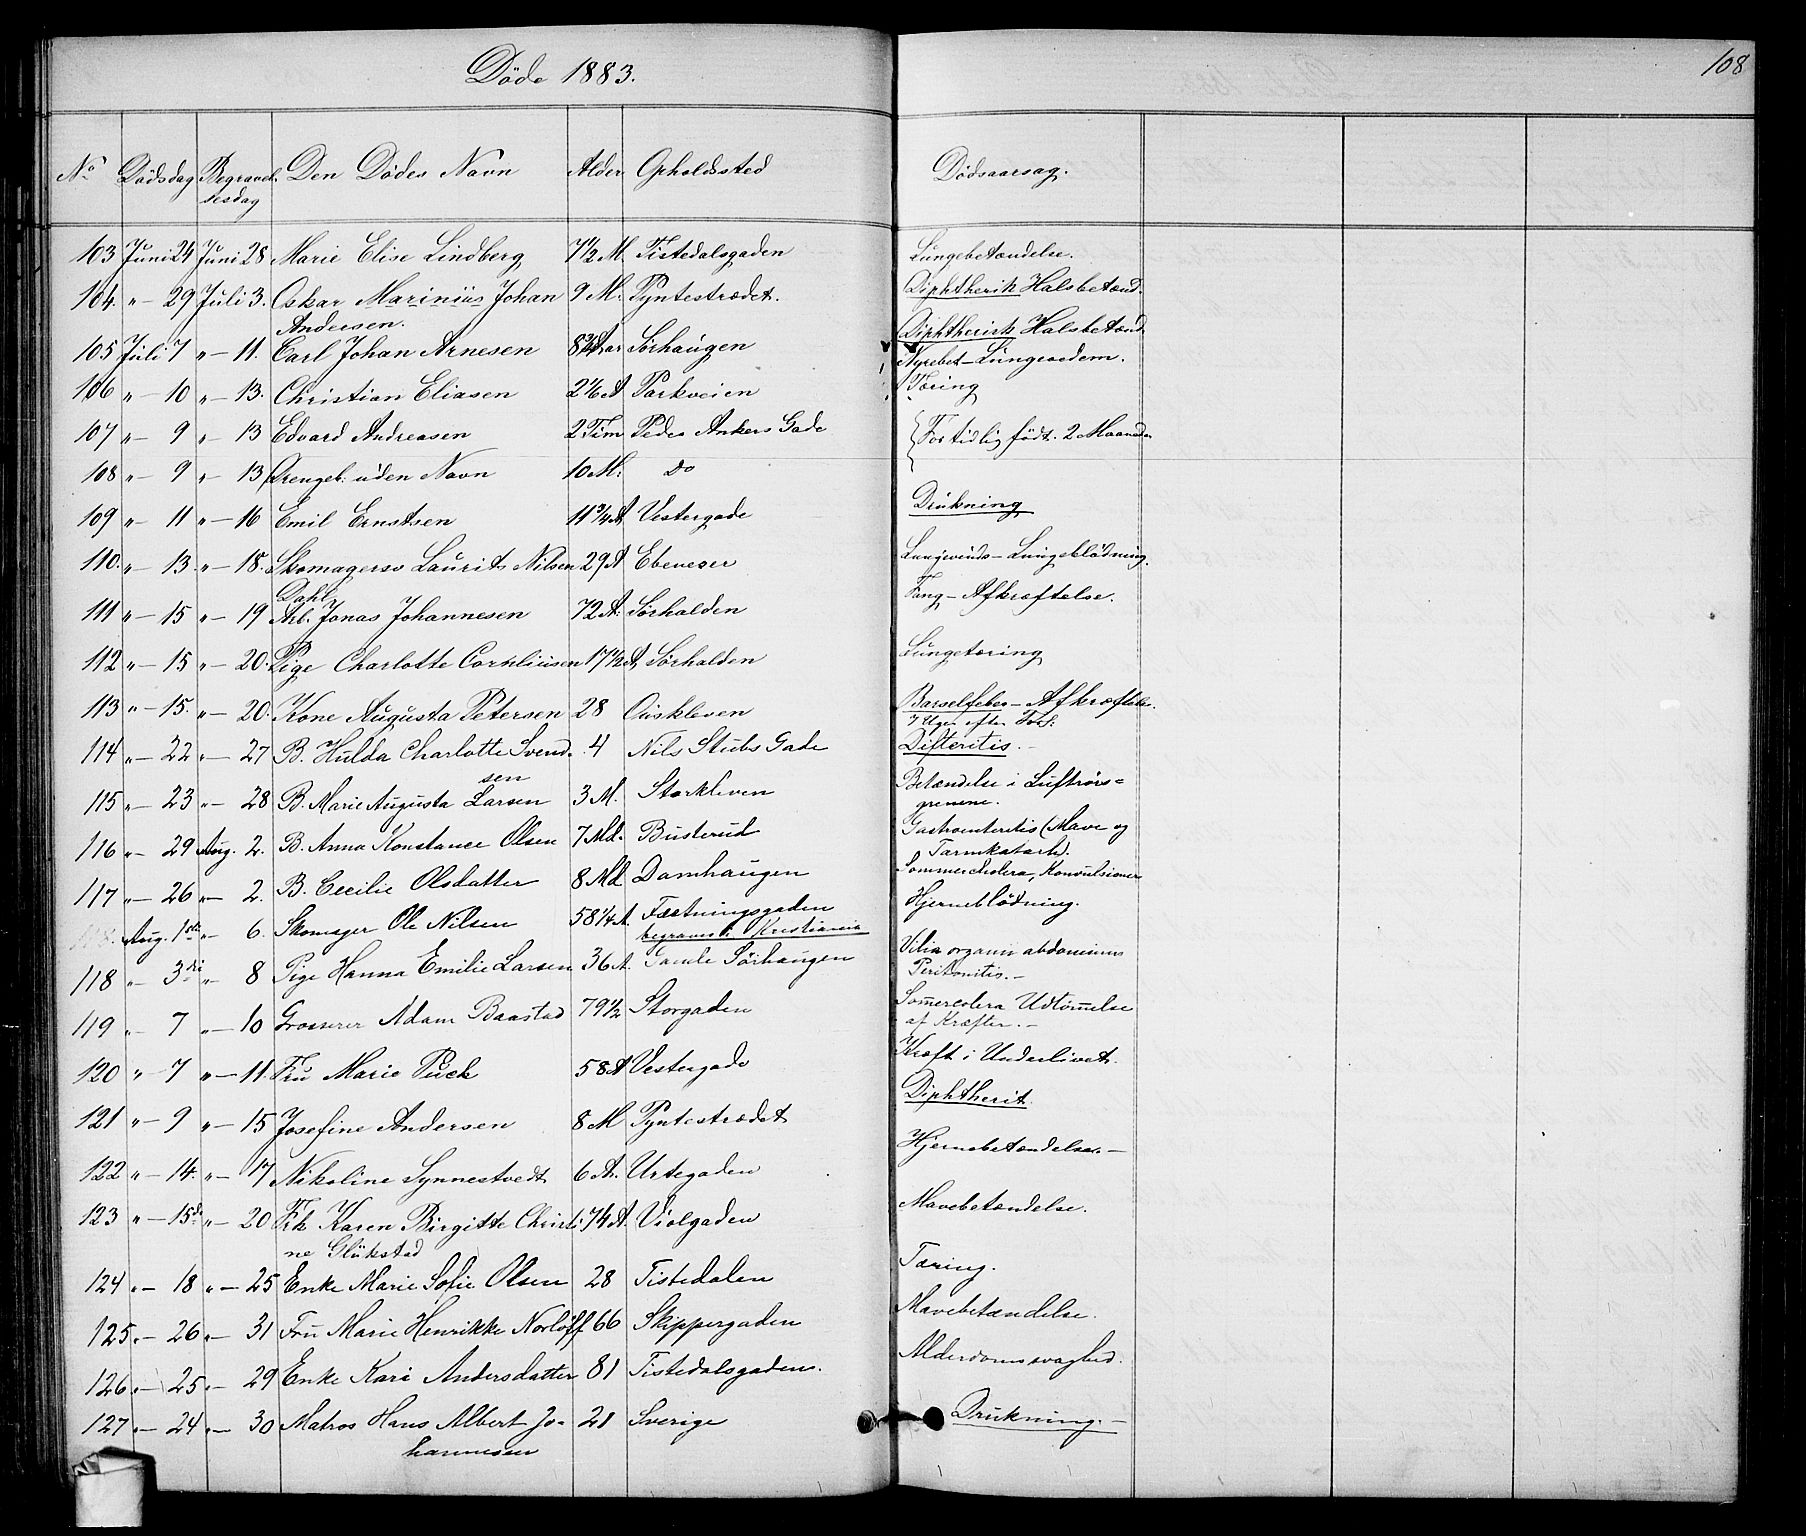 Döde 1883.
108
No Dödsdag Begravel- Den Dödes Navn Alder Opholdssted Dödsaarsag.
sesdag
103 Juni 24 Juni 28 Marie Elise Lindberg 7 1/2 M. Tistedalsgaden Lungebetændelse.
104. " - 29 Juli 3. Oskar Marinius Johan 9 M. Pyntestrædet. Diphtherisk Halsbetænd.
Andersen.
105 Juli 7 " - 11. Carl Johan Arnesen 8 3/4 Aar Sørhaugen Diphtherisk Halsbetænd.
Nyrebet - Lungeoedem.
106 " - 10 " - 13. Christian Eliasen 2 1/6 A Parkveien Tæring
107 " - 9 " - 13 Edvard Andreasen 2 Tim Peder Ankers Gade For tidlig født. 2 Maaneder
108 " - 9 " - 13 Drengeb. uden Navn 10 M: Do
109 " - 11 " - 16 Emil Ernstsen 11 3/4 A Vestergade Drukning
110. " - 13. " - 18. Skomagersv Laurits Nilsen 29 A Ebeneser Lungeblödning.
Dahl
111 " - 15 " - 19 Arb. Jonas Johannesen 72 A: Sørhalden Tæring - Afkræftelse.
112 " - 15 " - 20. Pige Charlotte Corneliusen 17 1/2 A, Sørhalden Lungetæring
113 " - 15. " - 20. Kone Augusta Petersen 28 Ouskleven Barselfeber - Afkræftelse.
7 Uger efter Fors:
114 " - 22 " - 27 B. Hulda Charlotte Svend- 4 Nils Stubs Gade Difteritis. -
sen
115 " - 23 " - 28 B. Marie Augusta Larsen 3 M. Storkleven Betændelse i Luftrørs=
grenene.
116 " - 29 Aug. 2. B. Anna Konstance Olsen 7 Md. Busterud Gastroenteritis (Mave og
Tarmkatarh).
117 " - 26 " - 2. B. Cecilie Olsdatter 8 Md Damhaugen Sommercholera, Konvulsioner
118. Aug. 1ste " - 6. Skomager Ole Nilsen 58 1/4 A. Fæstningsgaden Hjerneblödning.
begraves i Kristiania
118 " - 3die " - 8 Pige Hanna Emilie Larsen 36 A. Gamle Sörhaugen Vitia organi abdominus
Peritonitis. -
119 " - 7 " - 10 Grosserer Adam Baastad 79 1/2 Storgaden Somercolera Udtømelse
af Kræfter. -
120 " - 7 " - 11. Fru Marie Puck 58 A Vestergade Kræft i Underlivet.
121 " - 9 " - 15 Josefine Andersen 8 M Pyntestrædet Diphtherit.
122 " - 14. " - 17 Nikoline Synnestvedt 6 A. Urtegaden Hjernebetændelse. -
123 " - 15de " - 20 Frk Karen Birgitte Christi- 74 A. Violgaden Mavebetændelse.
ne Glükstad
124 " - 18 " - 25 Enke Marie Sofie Olsen 28 Tistedalen Tæring.
125 " - 26 " - 31 Fru Marie Henrikke Norløff 66 Skippergaden Mavebetændelse.
126 " - 25 " - 29 Enke Kari Andersdatter 81 Tistedalsgaden. Alderdomssvaghed.
127 " - 24 " - 30 Matros Hans Albert Jo- 21 Sverige Drukning. -
hannesen